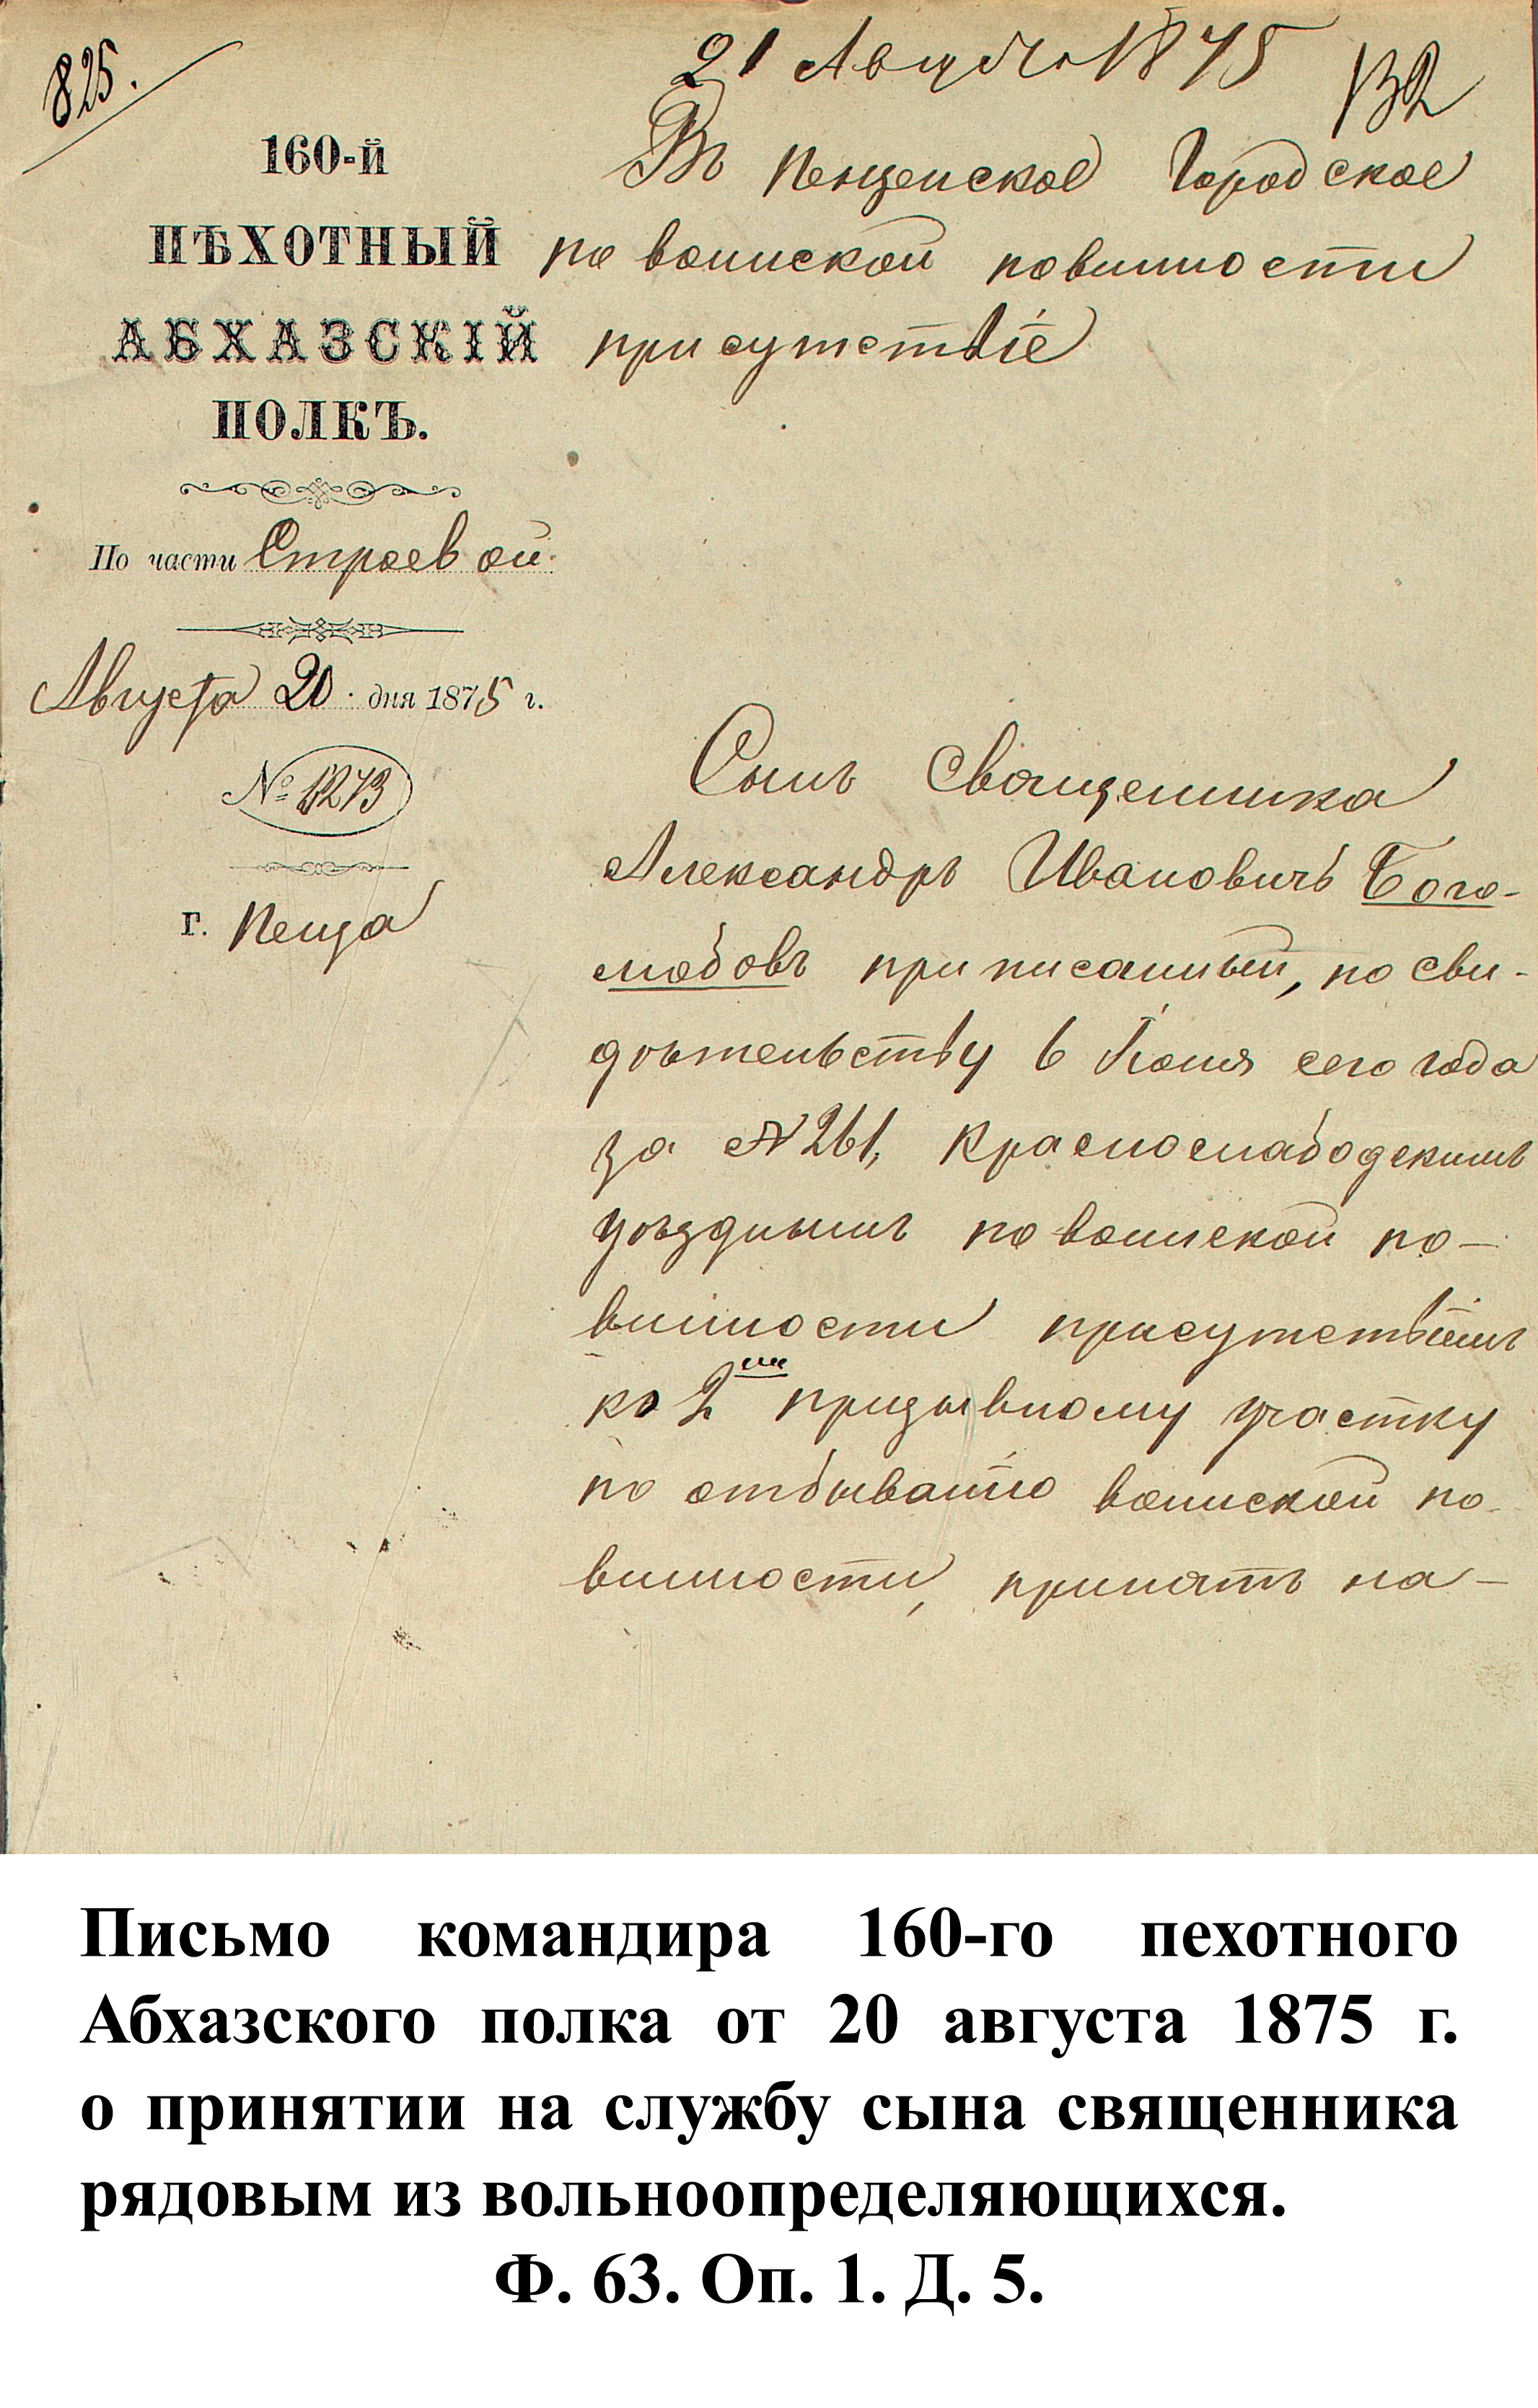 825.
21 Августа 1875
132
160-й
ПѢХОТНЫЙ
АБХАЗСКІЙ
ПОЛКЪ.
По части Строевой.
Августа 20 дня 1875 г.
№ 1273
г. Пенза
Въ Пензенское Городское
по воинской повинности
присутствіе
Сынъ Священника
Александръ Ивановичъ Бого-
любовъ приписанный, по сви-
дѣтельству 6 Іюня сего года
за № 261, Краснослабодскимъ
уѣзднымъ по воинской по-
винности присутствіемъ
ко 2му призывному участку
по отбыванію воинской по-
винности, принятъ на-
Письмо командира 160-го пехотного
Абхазского полка от 20 августа 1875 г.
о принятии на службу сына священника
рядовым из вольноопределяющихся.
Ф. 63. Оп. 1. Д. 5.